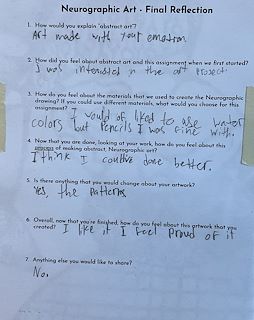 Neurographic Art - Final Reflection
1. How would you explain "abstract art"?
Art made with your emotion
2. How did you feel about abstract art and this assignment when we first started?
I was intersted in the art project
3. How do you feel about the materials that we used to create the Neurographic
drawing? If you could use different materials, what would you choose for this
assignment?
I would of liked to use water
colors but pencils I was fine with.
4. Now that you are done, looking at your work, how do you feel about this
process of making abstract, Neurographic art?
I think I could've done better.
5. Is there anything that you would change about your artwork?
Yes, the patterns
6. Overall, now that you're finished, how do you feel about this artwork that you
created? I like it I feel proud of it
7. Anything else you would like to share?
No.